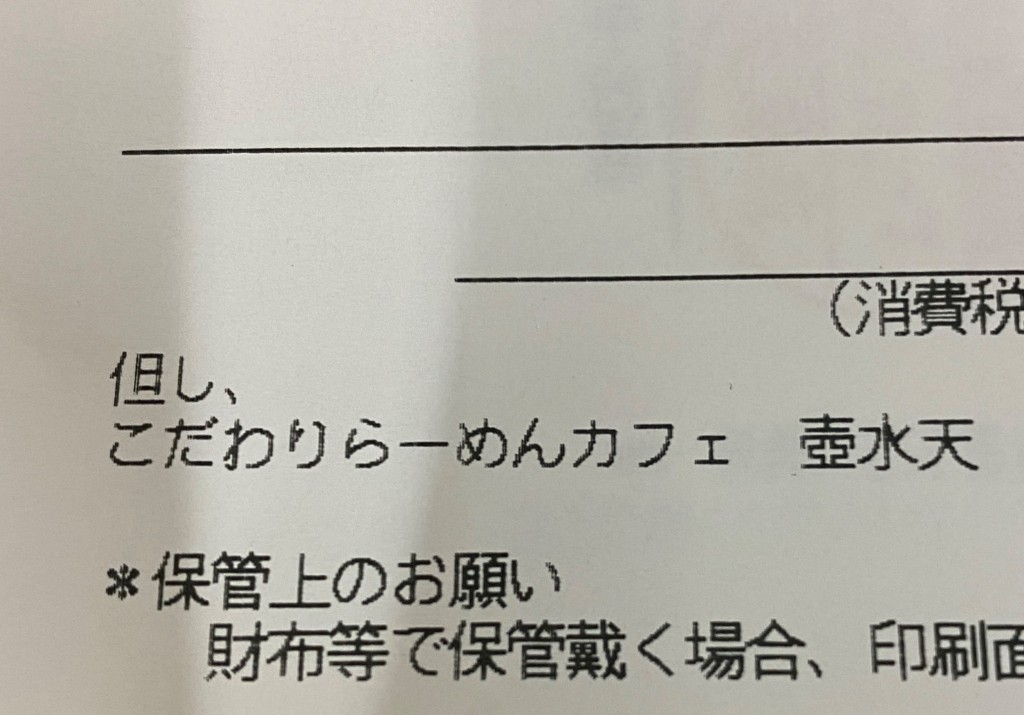 (消費税
但し、
こだわりらーめんカフェ　壺水天
*保管上のお願い
財布等で保管戴く場合、印刷面